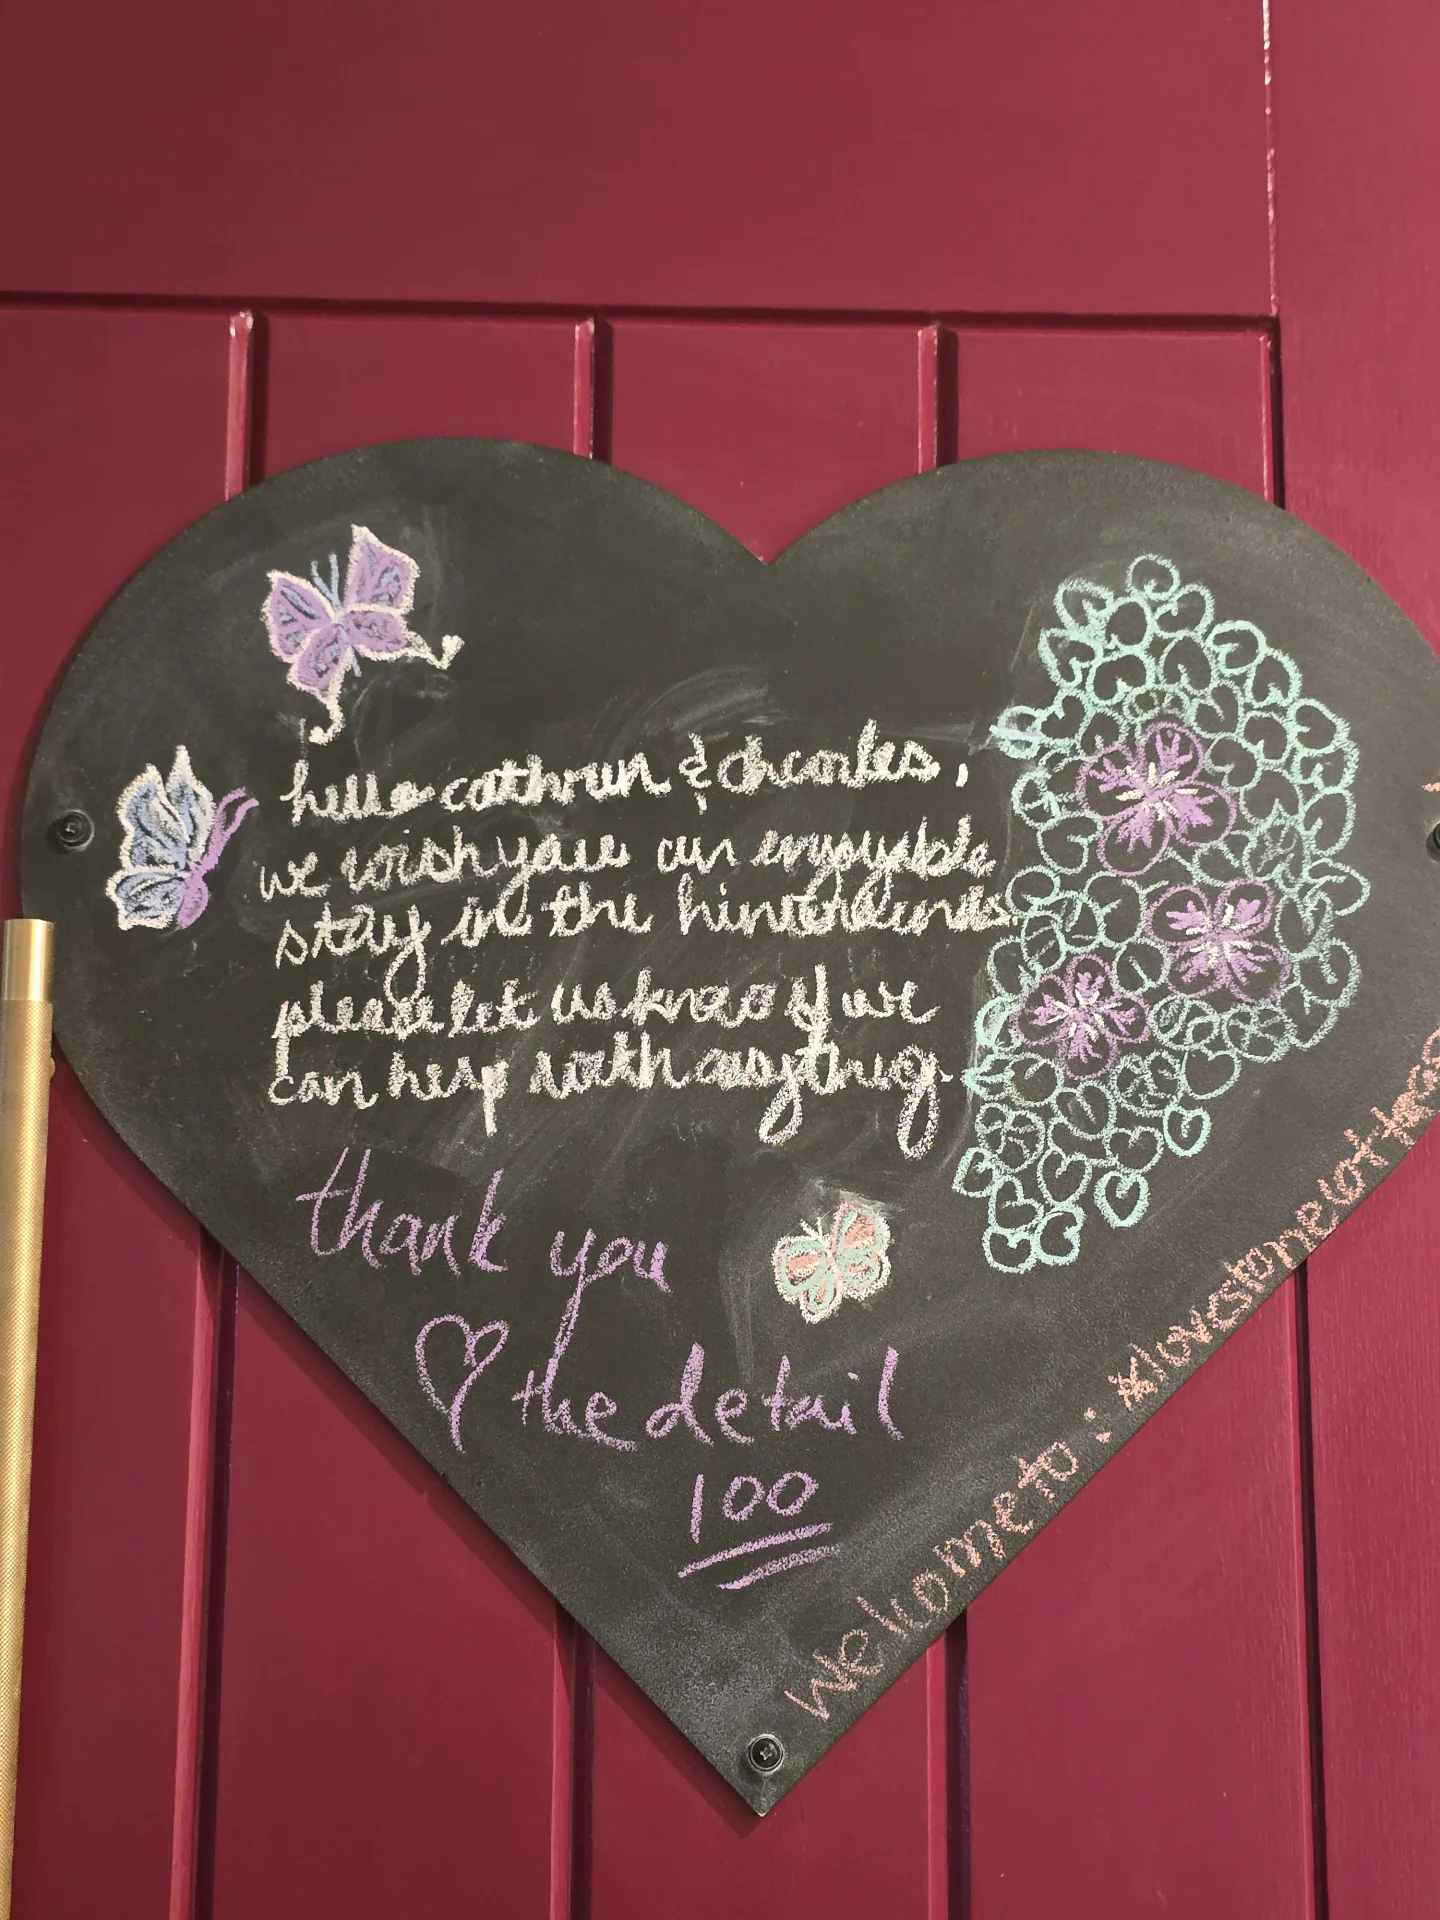 hello cathrun & charles,
we wish you an enjoyable
stay in the hinterlands
please let us know if we
can help with anything.
thank you
♡ the detail
100
Welcome to : #lovestone